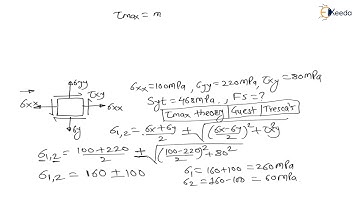 Ekeeda
τmax = m
σyy
τxy
σxx
σxx
σy
σxx = 100mpa, σyy = 220mpa, τxy = 80mpa
Syt = 468mpa, FS = ?
τmax theory / Guest / Tresca's
σ1,2 = σx+σy/2 ± √(σx-σy/2)²+τ²xy
σ1,2 = 100+220/2 ± √(100-220/2)²+80²
σ1,2 = 160 ± 100
σ1 = 160+100 = 260mpa
σ2 = 160-100 = 60mpa